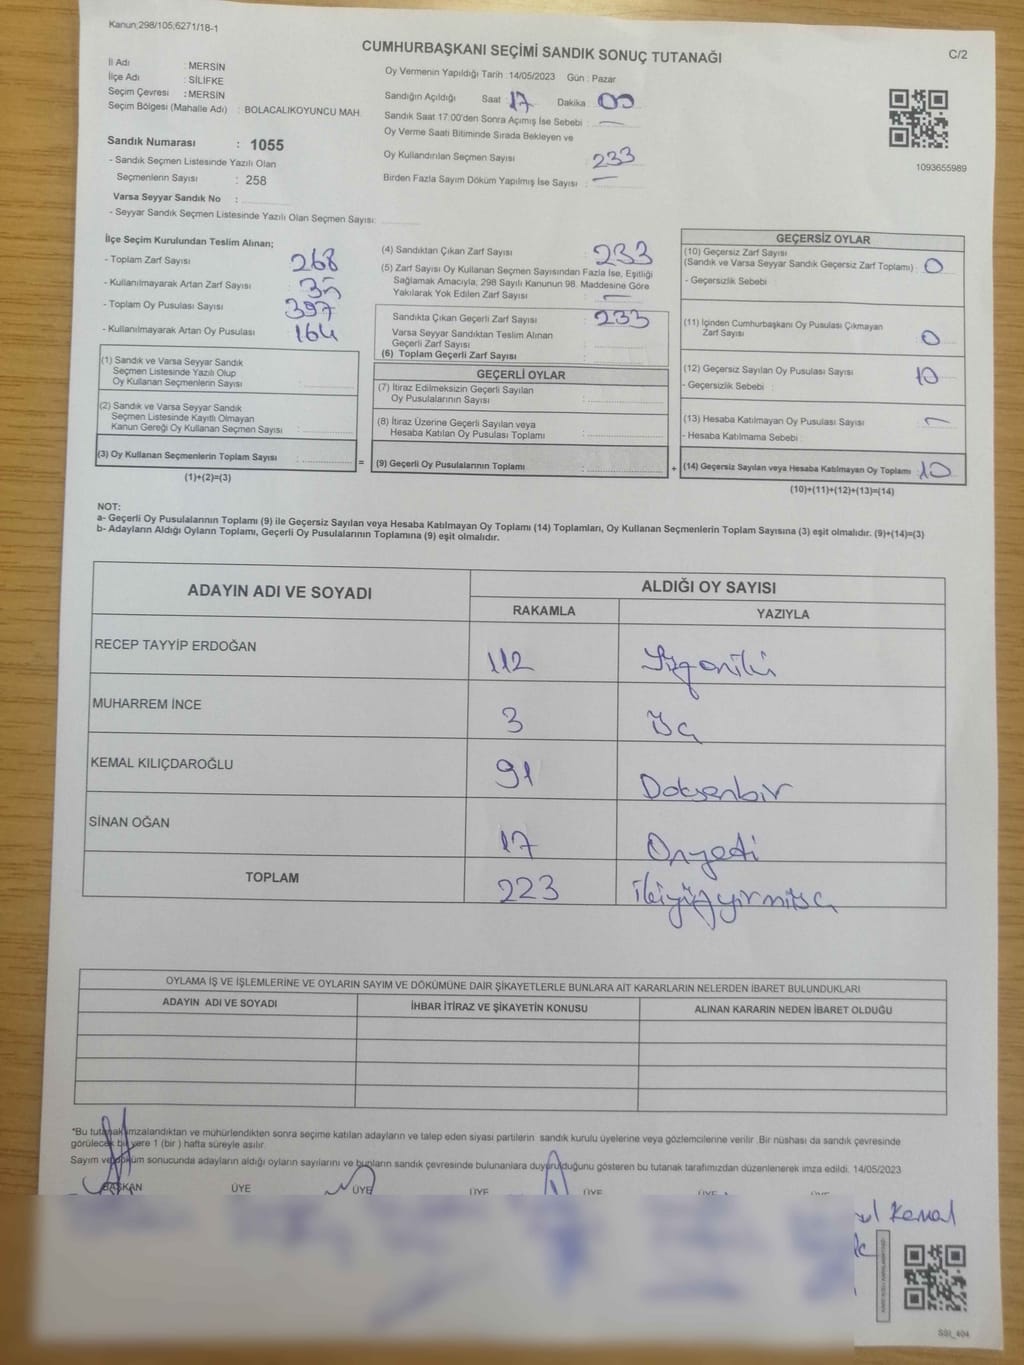 Kanun:298/105;6271/18-1
CUMHURBAŞKANI SEÇİMİ SANDIK SONUÇ TUTANAĞI
C/2
İl Adı : MERSİN
İlçe Adı : SİLİFKE
Seçim Çevresi : MERSİN
Seçim Bölgesi (Mahalle Adı) : BOLACALIKOYUNCU MAH.
Sandık Numarası : 1055
- Sandık Seçmen Listesinde Yazılı Olan
Seçmenlerin Sayısı : 258
Varsa Seyyar Sandık No :
- Seyyar Sandık Seçmen Listesinde Yazılı Olan Seçmen Sayısı:
Oy Vermenin Yapıldığı Tarih :14/05/2023 Gün : Pazar
Sandığın Açıldığı Saat : 17 Dakika 00
Sandık Saat 17:00'den Sonra Açımış İse Sebebi : —
Oy Verme Saati Bitiminde Sırada Bekleyen ve
Oy Kullandırılan Seçmen Sayısı : 233
Birden Fazla Sayım Döküm Yapılmış İse Sayısı : —
1093655989
İlçe Seçim Kurulundan Teslim Alınan;
- Toplam Zarf Sayısı : 268
- Kullanılmayarak Artan Zarf Sayısı : 35
- Toplam Oy Pusulası Sayısı : 397
- Kullanılmayarak Artan Oy Pusulası : 164
(1) Sandık ve Varsa Seyyar Sandık
Seçmen Listesinde Yazılı Olup
Oy Kullanan Seçmenlerin Sayısı :
(2) Sandık ve Varsa Seyyar Sandık
Seçmen Listesinde Kayıtlı Olmayan
Kanun Gereği Oy Kullanan Seçmen Sayısı :
(3) Oy Kullanan Seçmenlerin Toplam Sayısı :
(1)+(2)=(3)
(4) Sandıktan Çıkan Zarf Sayısı : 233
(5) Zarf Sayısı Oy Kullanan Seçmen Sayısından Fazla İse, Eşitliği
Sağlamak Amacıyla; 298 Sayılı Kanunun 98. Maddesine Göre
Yakılarak Yok Edilen Zarf Sayısı : —
Sandıkta Çıkan Geçerli Zarf Sayısı : 233
Varsa Seyyar Sandıktan Teslim Alınan
Geçerli Zarf Sayısı :
(6) Toplam Geçerli Zarf Sayısı :
GEÇERLİ OYLAR
(7) İtiraz Edilmeksizin Geçerli Sayılan
Oy Pusulalarının Sayısı :
(8) İtiraz Üzerine Geçerli Sayılan veya
Hesaba Katılan Oy Pusulası Toplamı :
= (9) Geçerli Oy Pusulalarının Toplamı :
GEÇERSİZ OYLAR
(10) Geçersiz Zarf Sayısı
(Sandık ve Varsa Seyyar Sandık Geçersiz Zarf Toplamı) : 0
- Geçersizlik Sebebi :
(11) İçinden Cumhurbaşkanı Oy Pusulası Çıkmayan
Zarf Sayısı : 0
(12) Geçersiz Sayılan Oy Pusulası Sayısı : 10
- Geçersizlik Sebebi :
(13) Hesaba Katılmayan Oy Pusulası Sayısı : —
- Hesaba Katılmama Sebebi :
+ (14) Geçersiz Sayılan veya Hesaba Katılmayan Oy Toplamı : 10
(10)+(11)+(12)+(13)=(14)
NOT:
a- Geçerli Oy Pusulalarının Toplamı (9) ile Geçersiz Sayılan veya Hesaba Katılmayan Oy Toplamı (14) Toplamları, Oy Kullanan Seçmenlerin Toplam Sayısına (3) eşit olmalıdır. (9)+(14)=(3)
b- Adayların Aldığı Oyların Toplamı, Geçerli Oy Pusulalarının Toplamına (9) eşit olmalıdır.
ADAYIN ADI VE SOYADI
ALDIĞI OY SAYISI
RAKAMLA YAZIYLA
RECEP TAYYİP ERDOĞAN 112 Yüzoniki
MUHARREM İNCE 3 Üç
KEMAL KILIÇDAROĞLU 91 Doksenbir
SİNAN OĞAN 17 Onyedi
TOPLAM 223 ikiyüzyirmiüç
OYLAMA İŞ VE İŞLEMLERİNE VE OYLARIN SAYIM VE DÖKÜMÜNE DAİR ŞİKAYETLERLE BUNLARA AİT KARARLARIN NELERDEN İBARET BULUNDUKLARI
ADAYIN ADI VE SOYADI İHBAR İTİRAZ VE ŞİKAYETİN KONUSU ALINAN KARARIN NEDEN İBARET OLDUĞU
*Bu tutanak imzalandıktan ve mühürlendikten sonra seçime katılan adayların ve talep eden siyasi partilerin sandık kurulu üyelerine veya gözlemcilerine verilir. Bir nüshası da sandık çevresinde
görülecek bir yere 1 (bir ) hafta süreyle asılır.
Sayım ve döküm sonucunda adayların aldığı oyların sayılarını ve bunların sandık çevresinde bulunanlara duyurulduğunu gösteren bu tutanak tarafımızdan düzenlenerek imza edildi. 14/05/2023
BAŞKAN ÜYE ÜYE ÜYE ÜYE ÜYE
Kemal
SSI_404